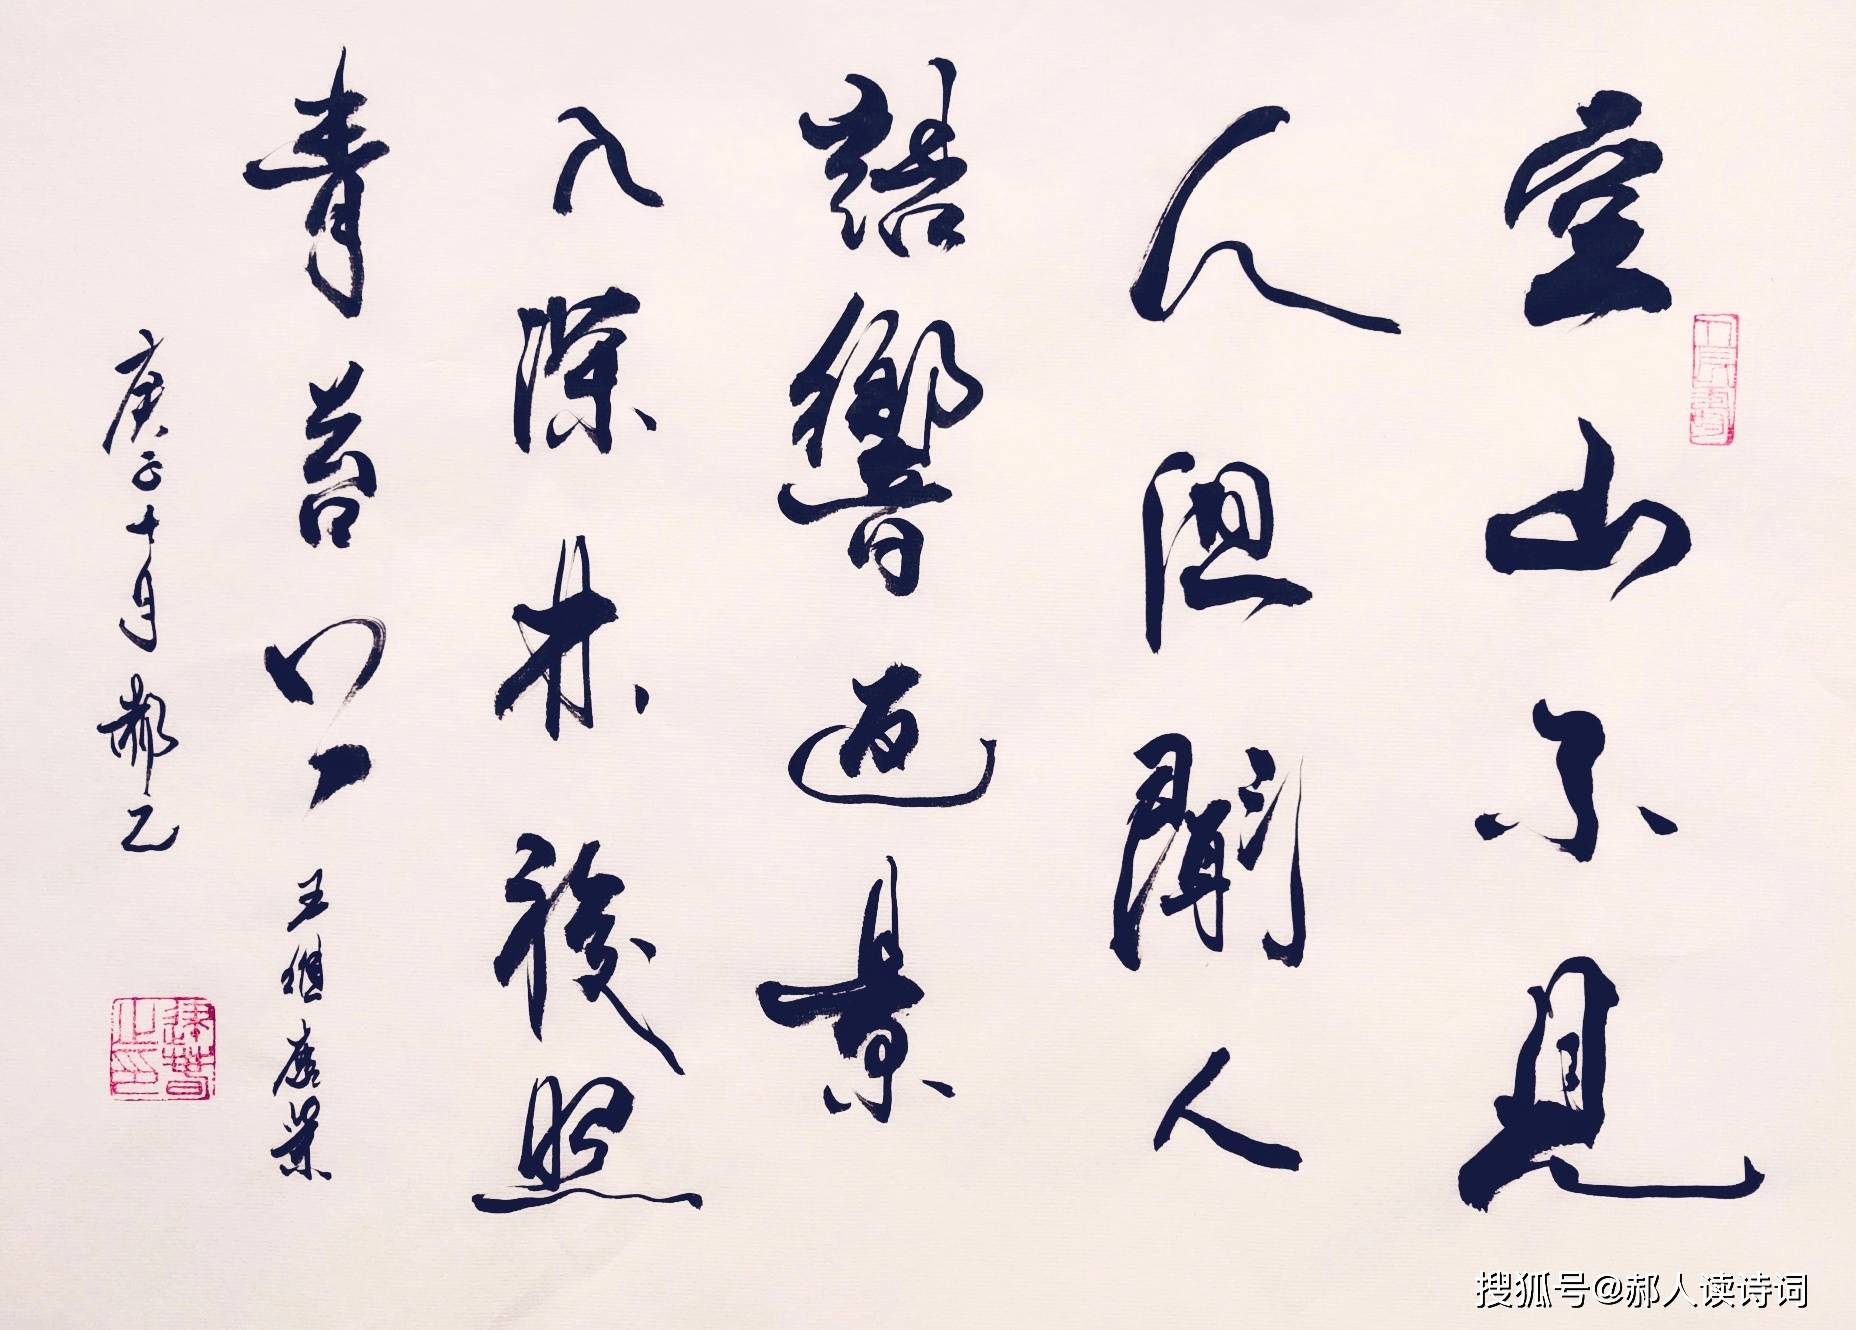 空山不見
人但聞人
語響返景
入深林復照
青苔上 王維鹿柴
庚子十月郝乙
搜狐号@郝人读诗词